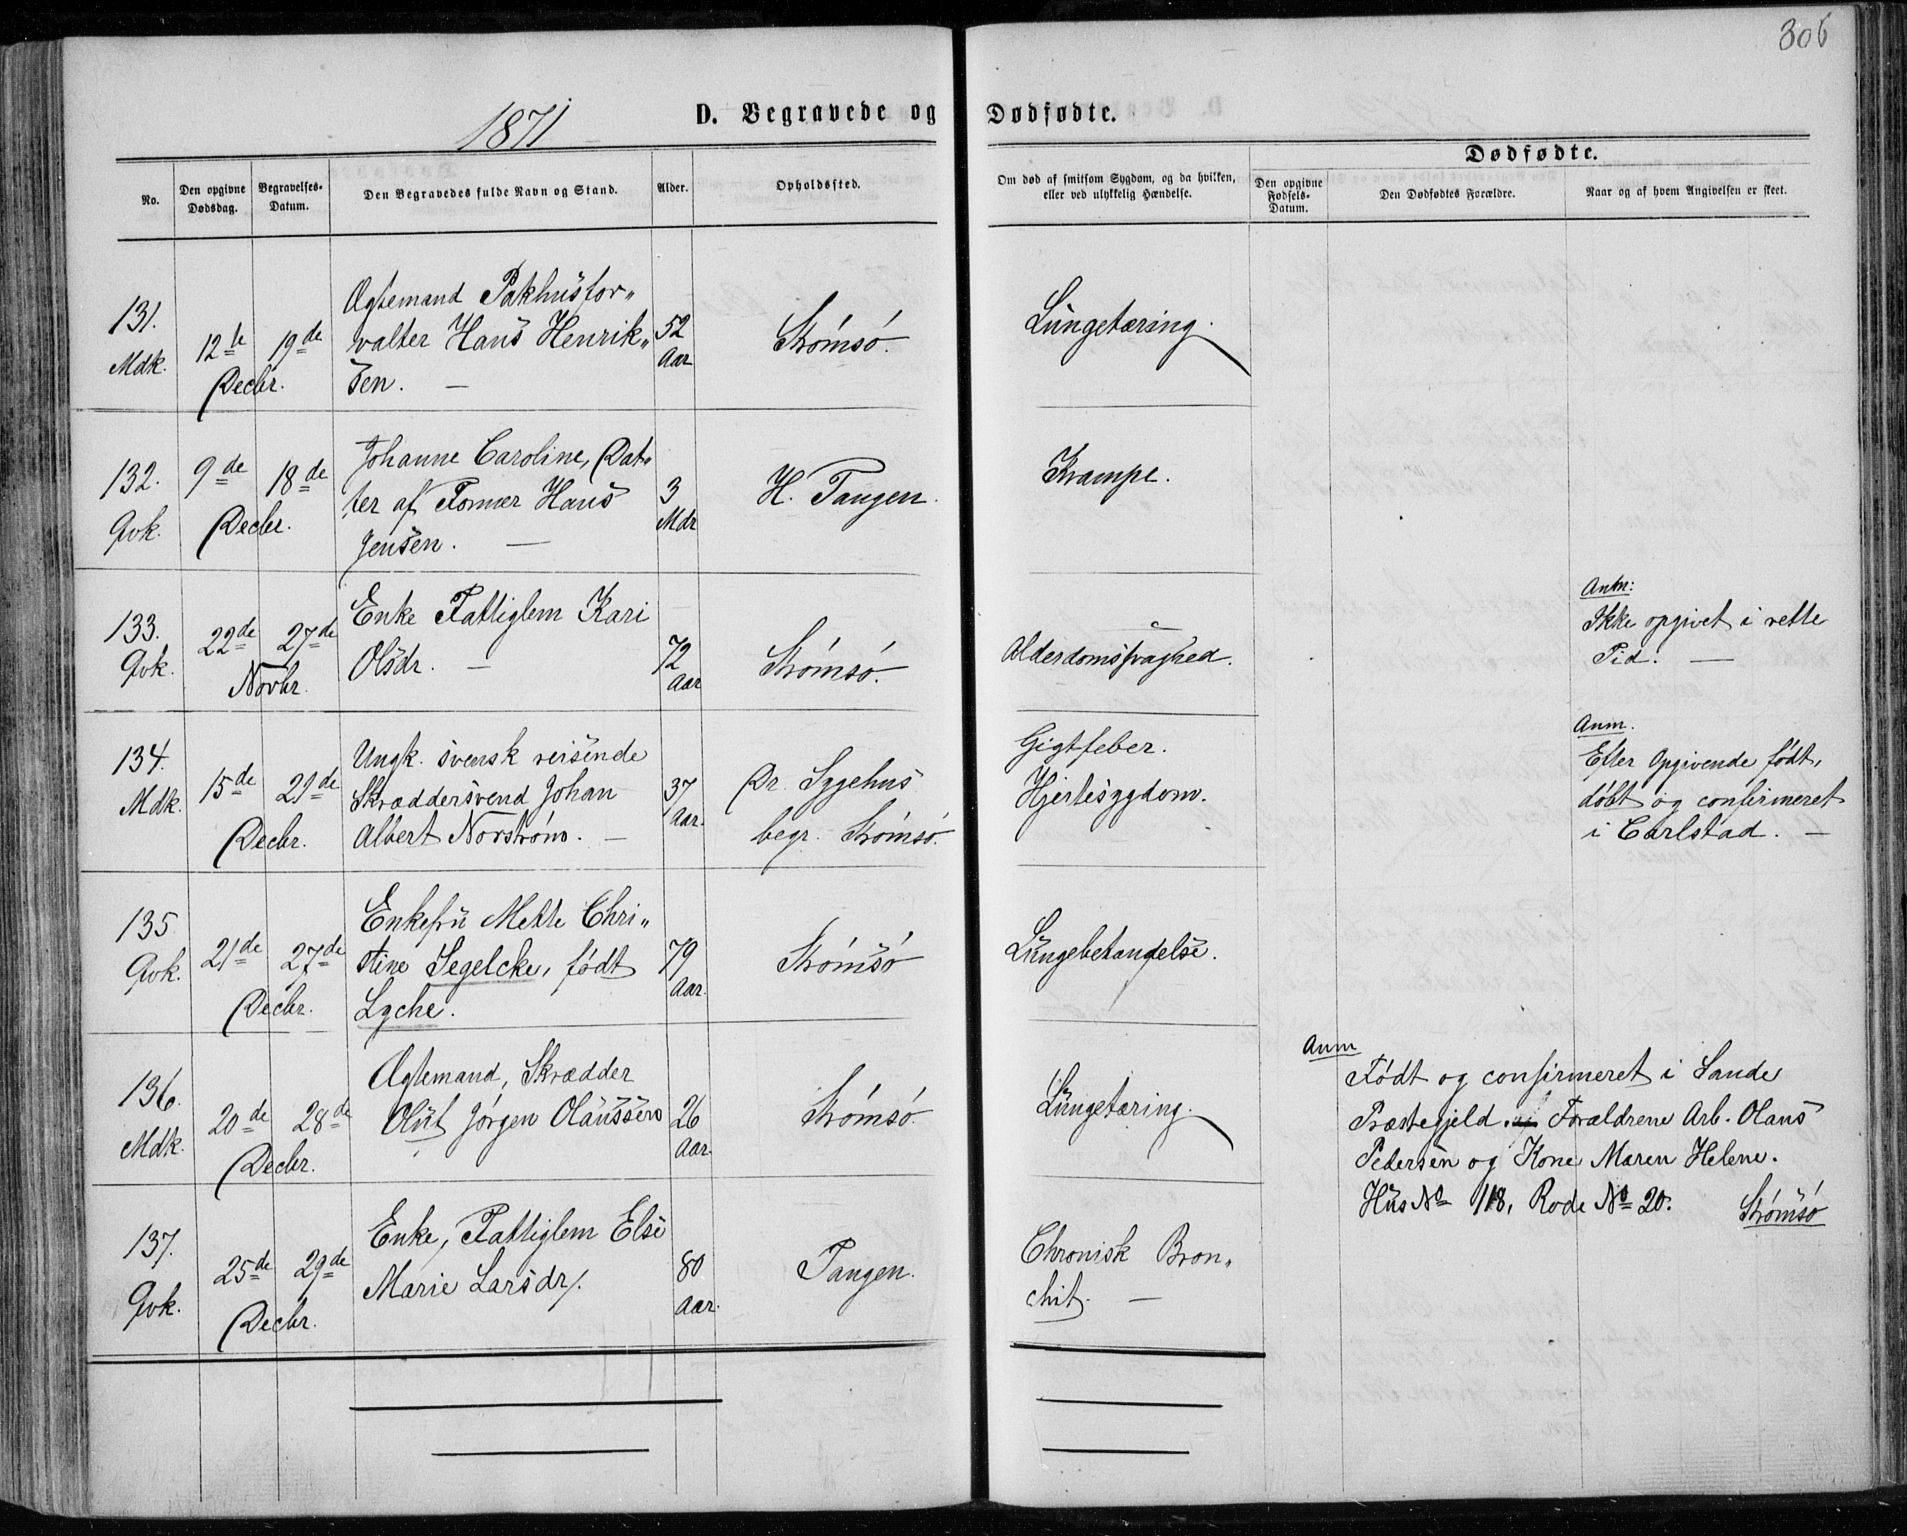 306
1871
D. Begravede og Dødfødte.
No.
Den opgivne Dødsdag.
Begravelses-Datum.
Den Begravedes fulde Navn og Stand.
Alder.
Opholdssted.
Om død af smitsom Sygdom, og da hvilken,
eller ved ulykkelig Hændelse.
Dødfødte.
Den opgivne Fødsels-Datum.
Den Dødfødtes Forældre.
Naar og af hvem Angivelsen er skeet.
131.
Mdk.
12te 19de
Decbr.
Ægtemand Pakhusfor„
valter Hans Henrik„
sen. —
52
Aar
Strømsø.
Lungetæring.
132.
Qvk.
9de 18de
Decbr.
Johanne Caroline, Dat„
ter af Tomær Hans
Jensen. —
3
Mdr
H. Tangen.
Krampe.
133.
Qvk.
22de 27de
Novbr.
Enke Fattiglem Kari
Olsdr. —
72
Aar
Strømsø.
Alderdomssvaghed.
Anm:
Ikke opgivet i rette
Tid. —
134.
Mdk.
15de 21de
Decbr.
Ungk. svensk reisende
Skræddersvend Johan
Albert Norstrøm. —
37
Aar.
Dr. Sygehus
begr. Strømsø.
Gigtfeber.
Hjertesygdom.
Anm.
Efter Opgivende født,
døbt og confirmeret
i Carlstad. —
135
Qvk.
21de 27de
Decbr.
Enkefru Mette Chri„
stine Segelcke, født
Lyche.
79
Aar.
Strømsø
Lungebetændelse.
136.
Mdk.
20de 28de
Decbr.
Ægtemand, Skrædder
Oluf Jørgen Olaussen
26
Aar.
Strømsø.
Lungetæring.
Anm
Født og confirmeret i Sande
Præstegjeld. Forældrene Arb. Olaus
Pedersen og Kone Maren Helene.
Hus No 118, Rode No 20. Strømsø
137.
Qvk.
25de 29de
Decbr.
Enke, Fattiglem Else
Marie Larsdr.
80
Aar.
Tangen.
Chronisk Bron„
chit. —